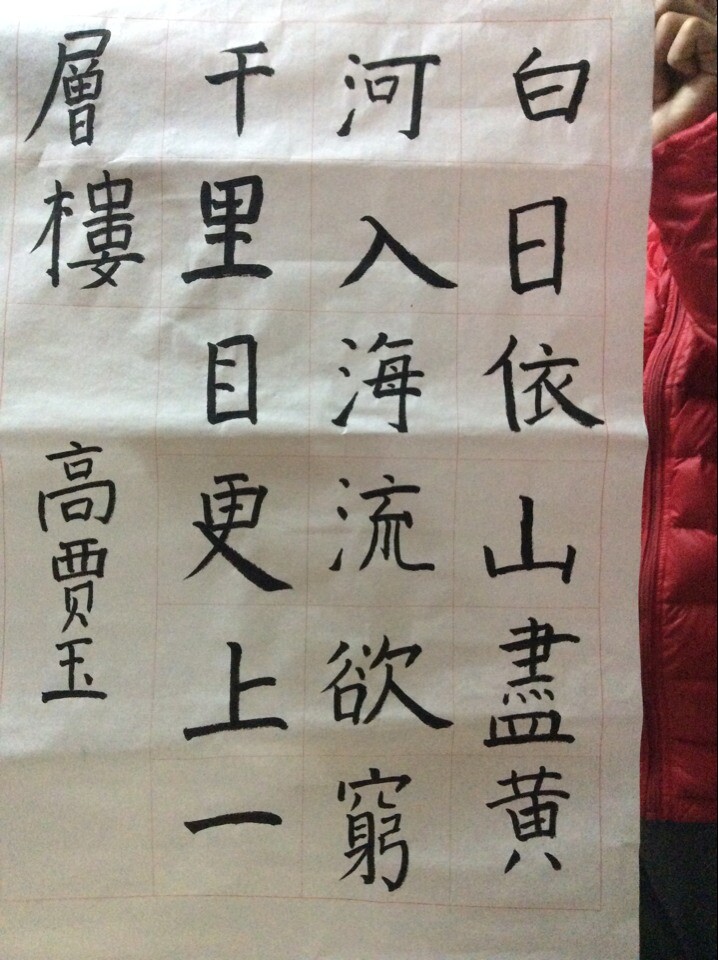 白日依山盡黄
河入海流欲窮
千里目更上一
層樓
高賈玉